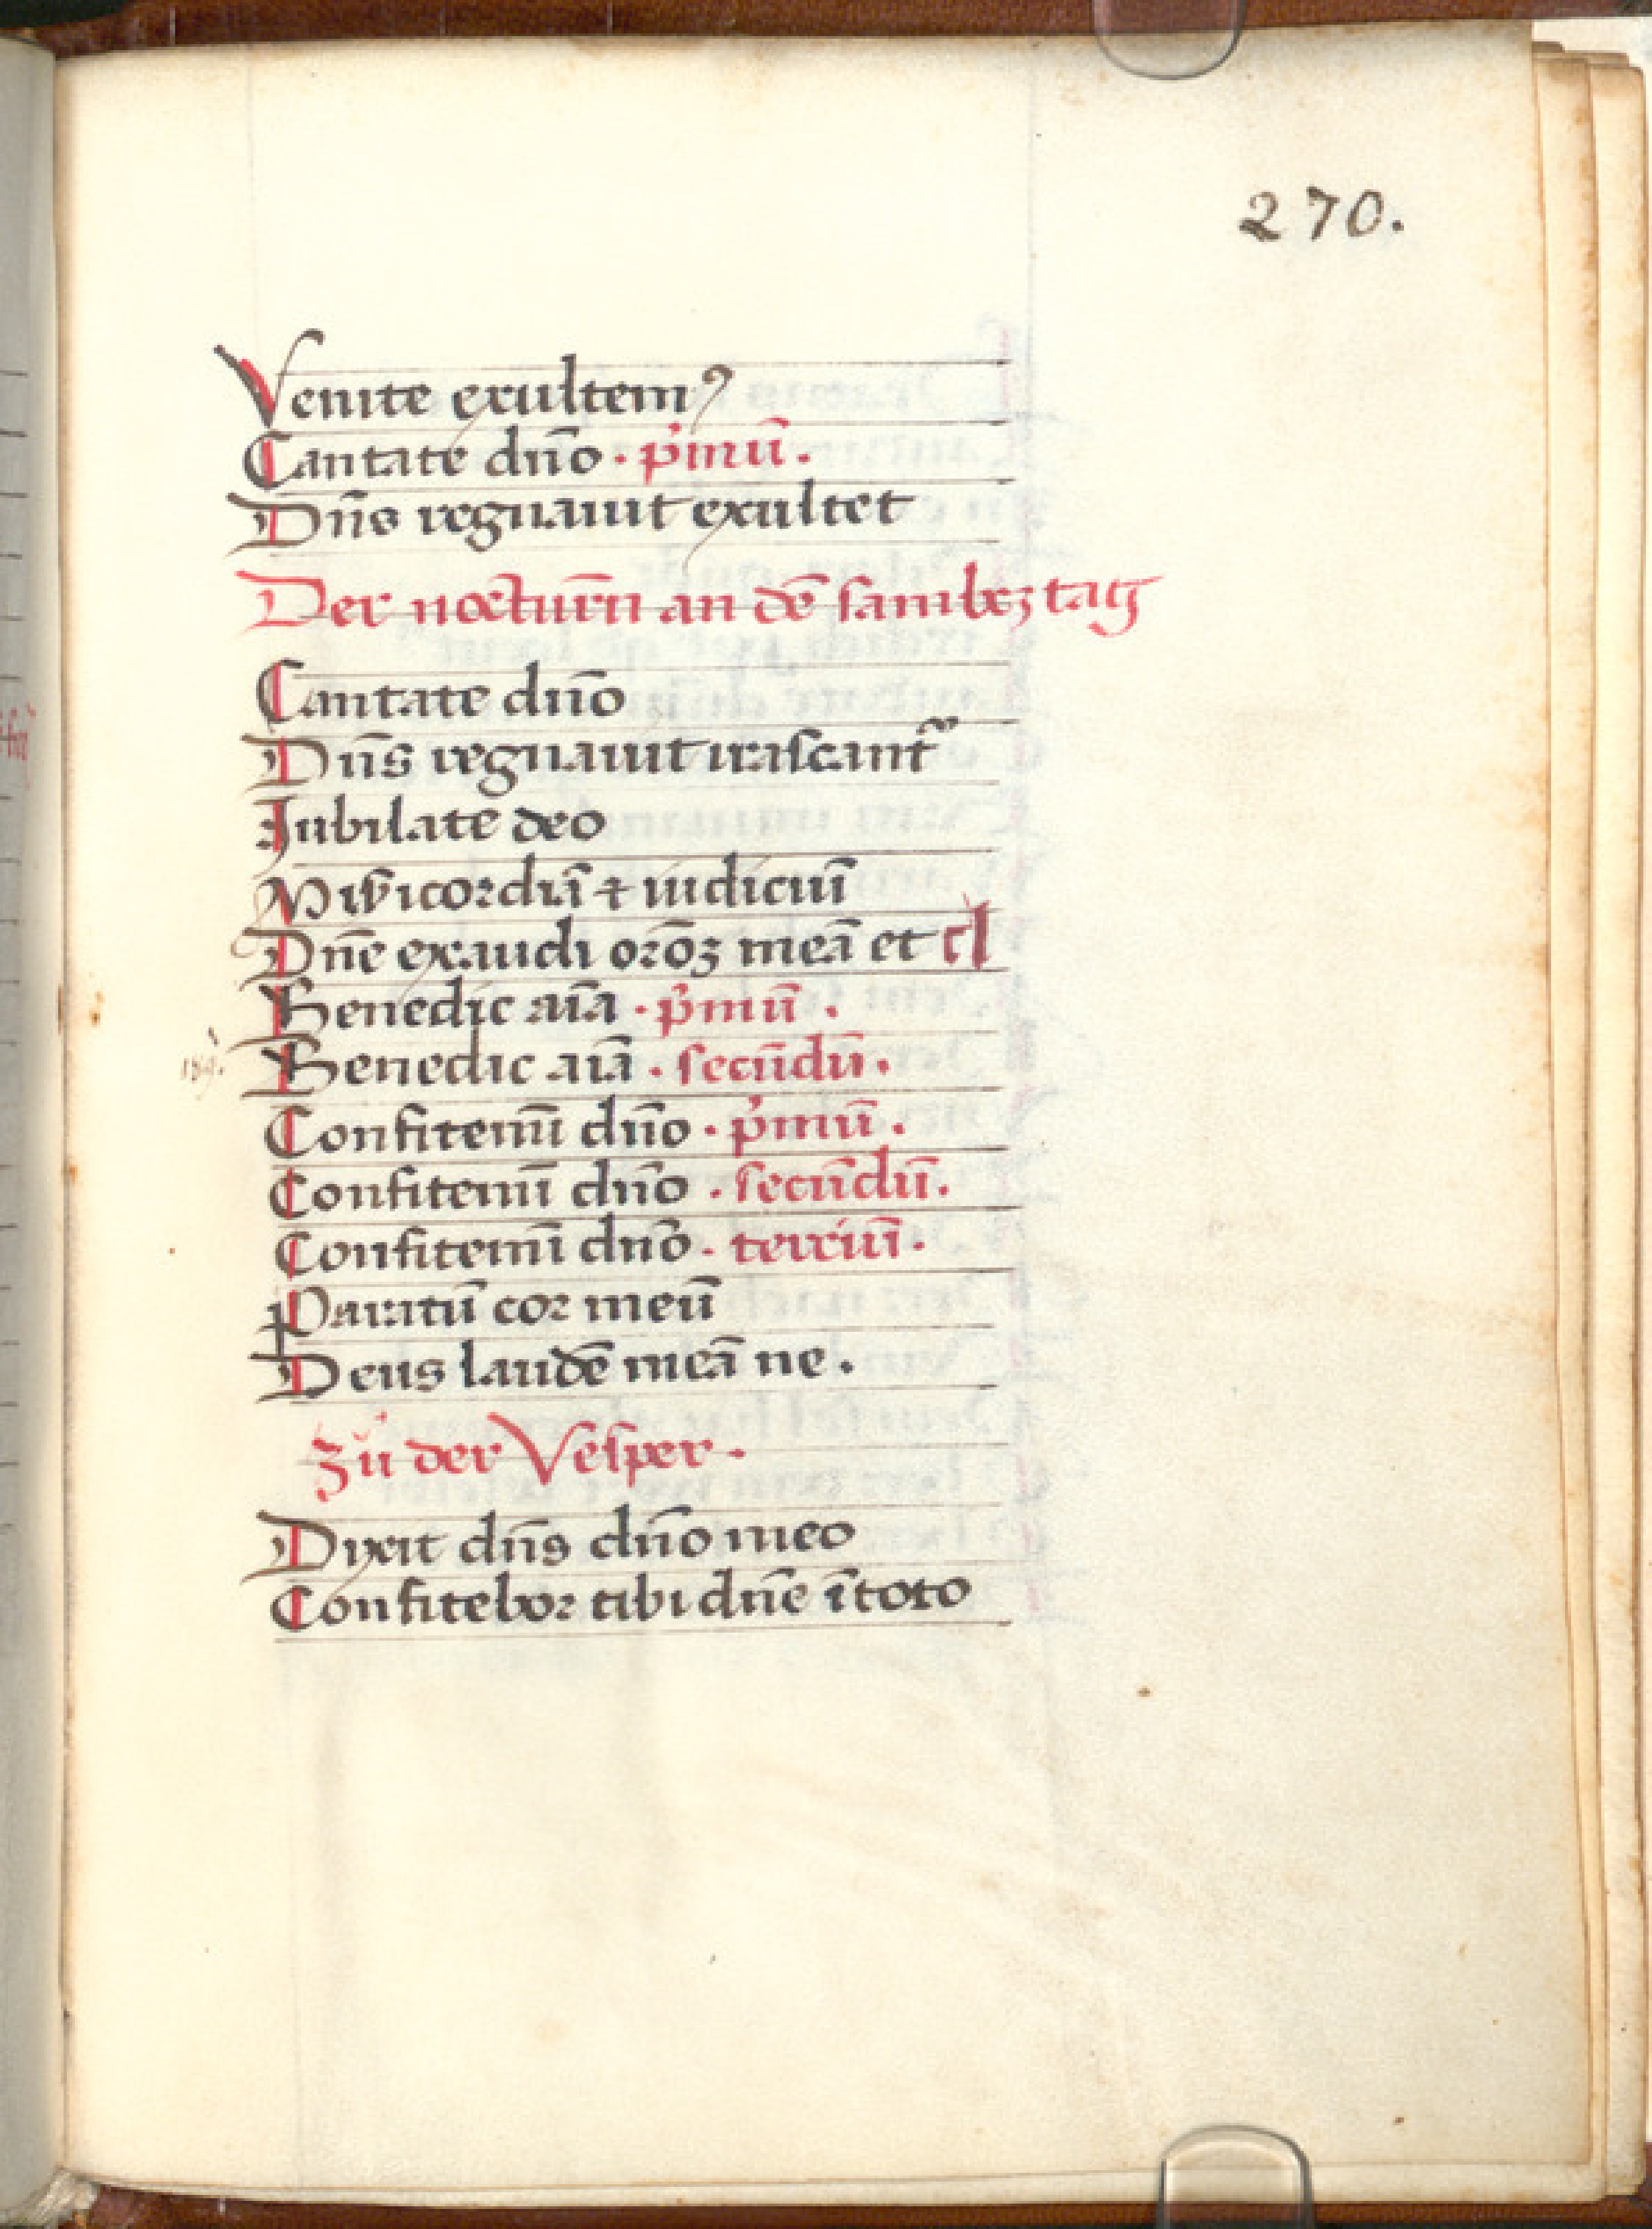 270.
Venite exultemꝰ
Cantate dn̄o · p̓mū .
Dn̄s regnauit exultet
Der nocturn̄ an dē sambeztag
Cantate dn̄o
Dn̄s regnauit irascant᷑
Jubilate deo
Misericordiā ⁊ iudiciū
Dn̄e exaudi orōꝫ meā et cl
Benedic aīa · p̓mū .
Benedic aīa · secūdū .
Confitemī dn̄o · p̓mū .
Confitemī dn̄o · secūdū .
Confitemī dn̄o · terciū .
Paratū cor meū
Deus laudē meā ne .
Zů der Vesper .
Dixit dn̄s dn̄o meo
Confitebor tibi dn̄e ī toto